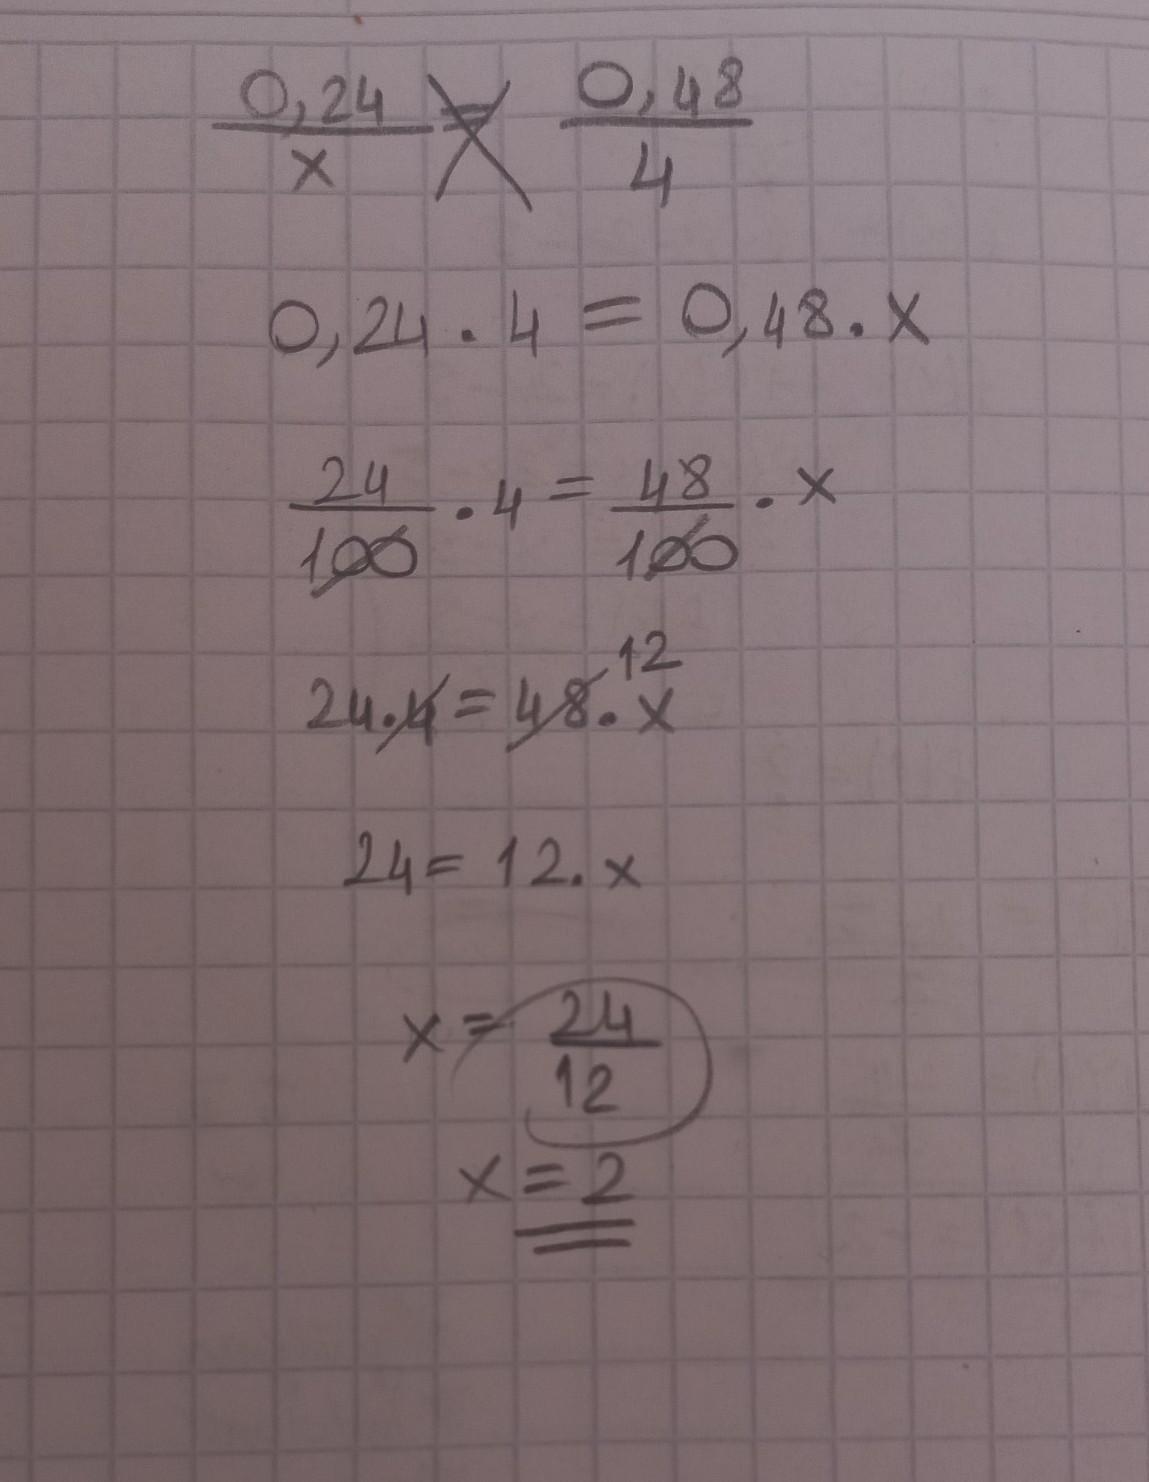 0,24/x = 0,48/4
0,24 . 4 = 0,48 . x
24/100 . 4 = 48/100 . x
24 . 4 = 48 . x 12
24 = 12 . x
x = 24/12
x = 2